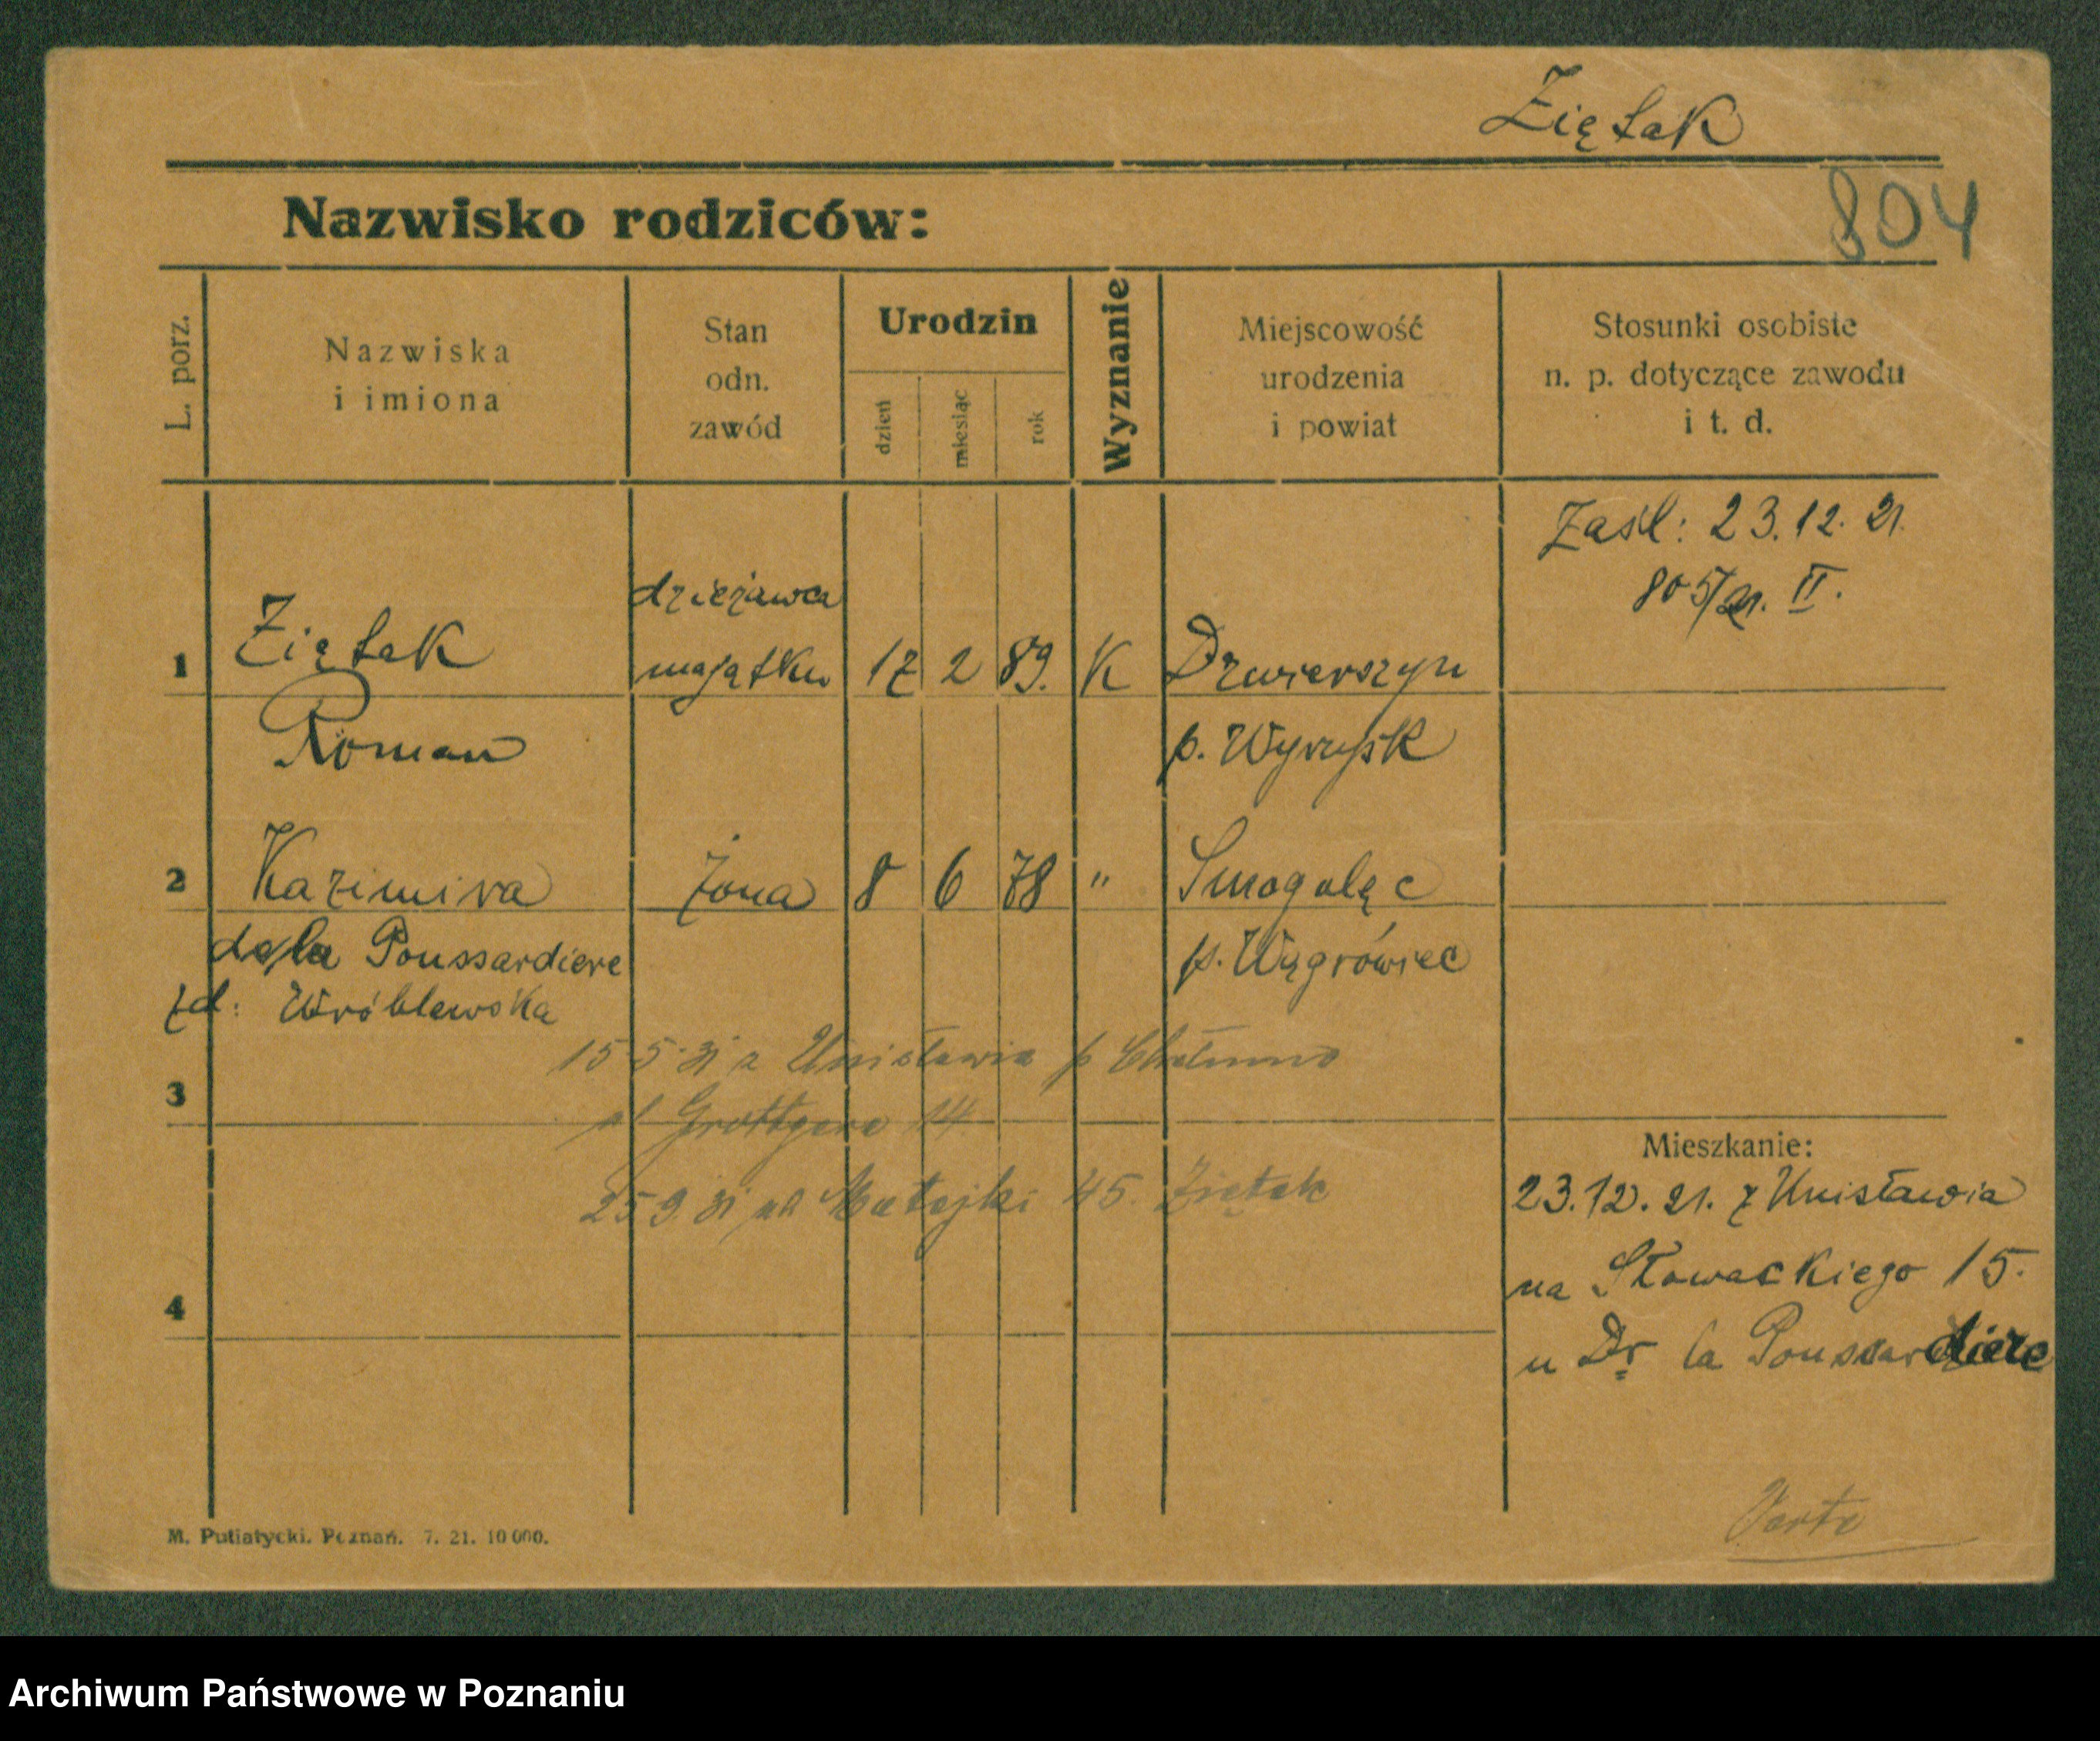 Ziętak
804
Nazwisko rodziców:
L. porz.
Nazwiska
i imiona
Stan
odn.
zawód
Urodzin
dzień
miesiąc
rok
Wyznanie
Miejscowość
urodzenia
i powiat
Stosunki osobiste
n. p. dotyczące zawodu
i t. d.
Zaśl: 23.12. 21.
805/21. II.
1 Ziętak
Roman
dzierżawca
majątku
17 2 89. K
Dzwierszyn
p. Wyrzysk
2 Kazimira
de la Poussardiere
żona 8 6 78 "
Smogulęc
p. Wągrówiec
Wróblewska
15 5 31 z Unisławia p Chełmno
3
ul Grottgera 14
25 9. 31 ul Matejki 45. Ziętak
4
Mieszkanie:
23.12. 21. z Unisławia
na Słowackiego 15.
u Dr la Poussardiere
Verte
M. Putiatycki. Poznań. 7. 21. 10 000.
Archiwum Państwowe w Poznaniu